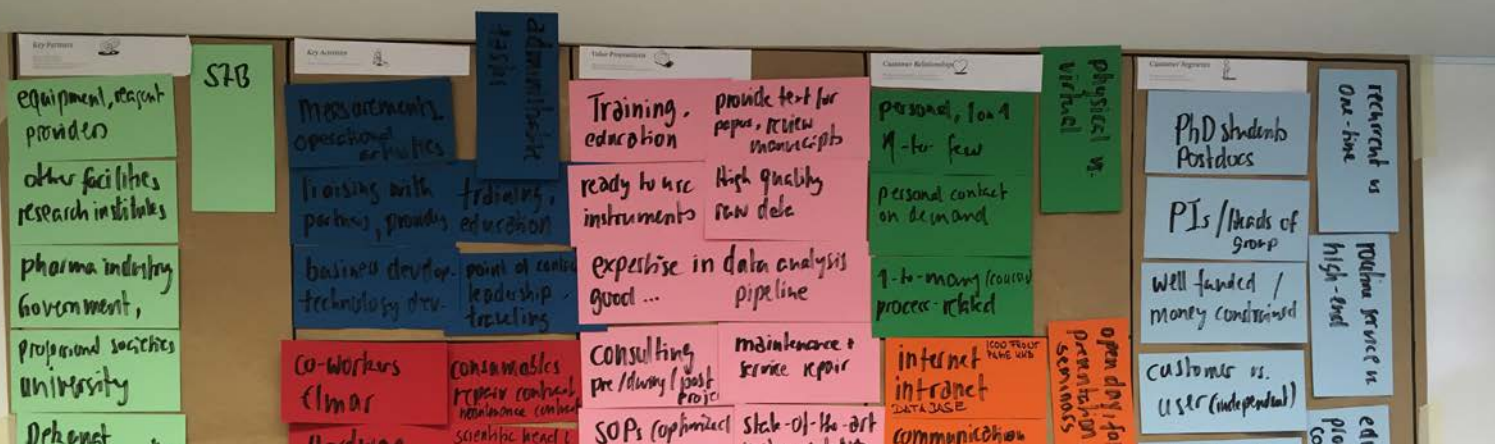 Key Partners
equipment, reagent
providers
other facilities
research institutes
pharma industry
Government,
professional societies
university
Dekanat
SFB
Key Activities
administrative
tasks
measurements
operational
activities
liaising with
partners, provides
training,
education
business develop.
technology dev.
point of contact
leadership,
traveling
co-workers
Elmar
consumables
repair contract
maintenance contract
Hardware
scientific head
Value Propositions
Training,
education
provide text for
papers, review
manuscripts
ready to use
instruments
High quality
raw data
expertise in data analysis
good ... pipeline
consulting
pre/during/post
project
maintenance +
service repair
SOPs (optimized
state-of-the-art
Customer Relationships
personal, 1on1
1-to-few
personal contact
on demand
1-to-many (course)
process-related
physical vs.
virtual
internet
intranet
DATABASE
communication
open day for
presentation
seminars
Customer Segments
PhD students
Postdocs
PIs/Heads of
group
well funded /
money constrained
customer vs.
user (independent)
recurrent vs
one-time
routine service vs
high-end